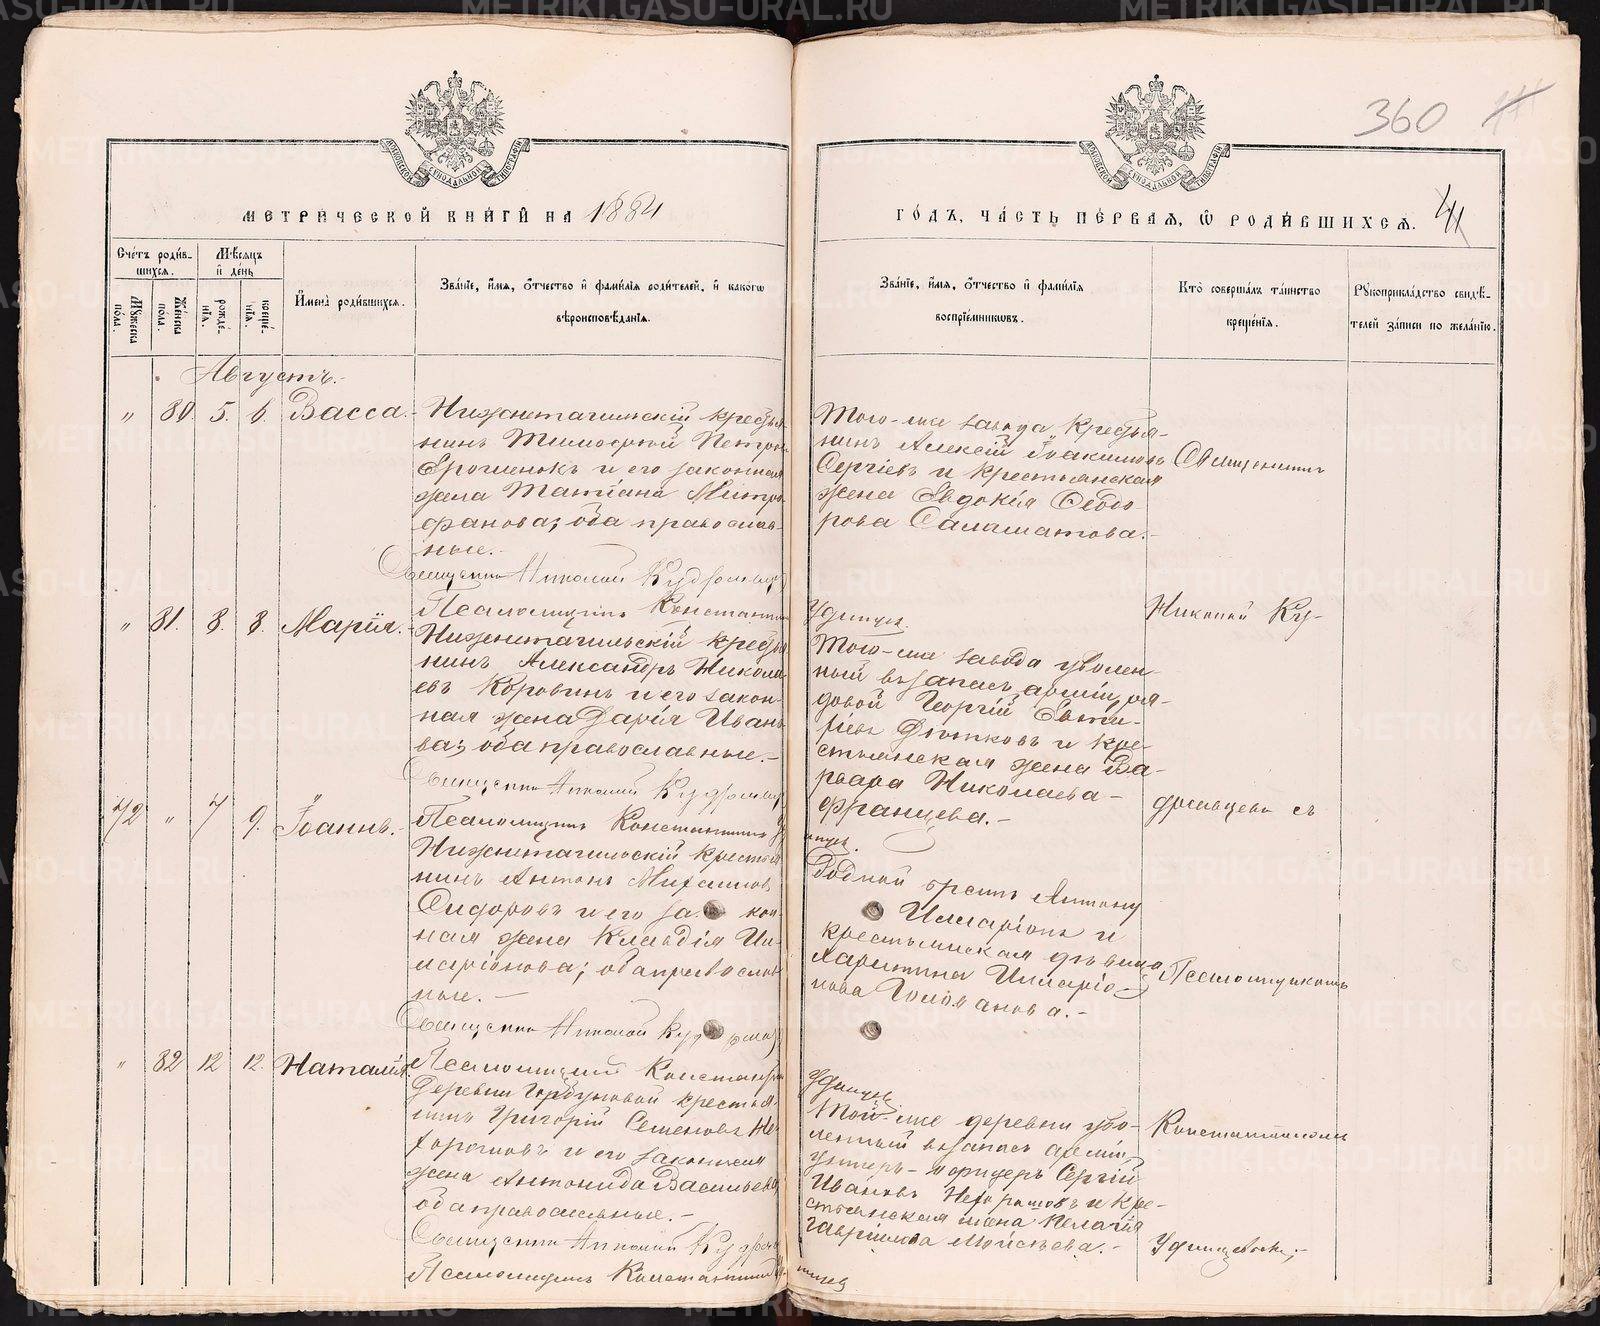 360
МЕТРИЧЕСКОЙ КНИГИ НА 1884
ГОДЪ, ЧАСТЬ ПЕРВАЯ, Ѡ РОДИВШИХСЯ.
Счетъ родившихся.
Мужеска пола.
Женска пола.
Мѣсяцъ и день
рожденія.
крещенія.
Имена родившихся.
Званіе, имя, отчество и фамилія родителей, и какогѡ
вѣроисповѣданія.
Званіе, имя, отчество и фамилія
воспріемниковъ.
Кто совершалъ таинство
крещенія.
Рукоприкладство свидѣ-
телей записи по желанію.
Августъ.
" 80 5. 6. Васса.
Нижнетагильскій крестья-
нинъ Тимофей Петровъ
Ерошенокъ и его законная
жена Татіана Митро-
фанова; оба православ-
ные.
Священникъ Николай Кудрявцев
Псаломщикъ Константинъ
Удинцев
Того-же завода крестья-
нинъ Алексій Іоакимовъ
Сергіевъ и крестьянская
жена Евдокія Ѳедо-
рова Саламатова.
Священникъ
" 81. 8. 8. Марія.
Нижнетагильскій крестья-
нинъ Александръ Никола-
евъ Коровинъ и его закон-
ная жена Дарія Ивано-
ва; оба православные.
Священникъ Николай Кудрявцев
Псаломщикъ Константинъ Уд
инцев.
Того-же завода уволен-
ный въ запасъ арміи ря-
довой Георгій Евти-
Фотковъ и кре-
стьянская жена Ва-
рвара Николаева
Францева.
Николай Ку-
72 " 7 9. Іоаннъ.
Нижнетагильскій крестья-
нинъ Антонъ Михаиловъ
Сидоровъ и его закон-
ная жена Клавдія Ил-
ларіонова; оба православ-
ные.
Священникъ Николай Кудрявцев
Псаломщикъ Константинъ
Удинцев
Родной братъ Антону
Илларіонъ и
крестьянская дѣвица
Харитина Илларіо-
нова Голованова.
дрявцевъ съ
Псаломщикомъ
" 82 12 12. Наталія.
Деревни Горбуновой крестья-
нинъ Григорій Семеновъ Не-
хорошковъ и его законная
жена Антонида Васильева
оба православные.
Священникъ Николай Кудрявц
Псаломщикъ Константинъ Уд
инцев
Той-же деревни уво-
ленный въ запасъ арміи
унтеръ-офицеръ Сергій
Ивановъ Нехорошковъ и кре-
стьянская жена Пелагія
Гавріилова Мойсѣева.
Константиномъ
Удинцевымъ;